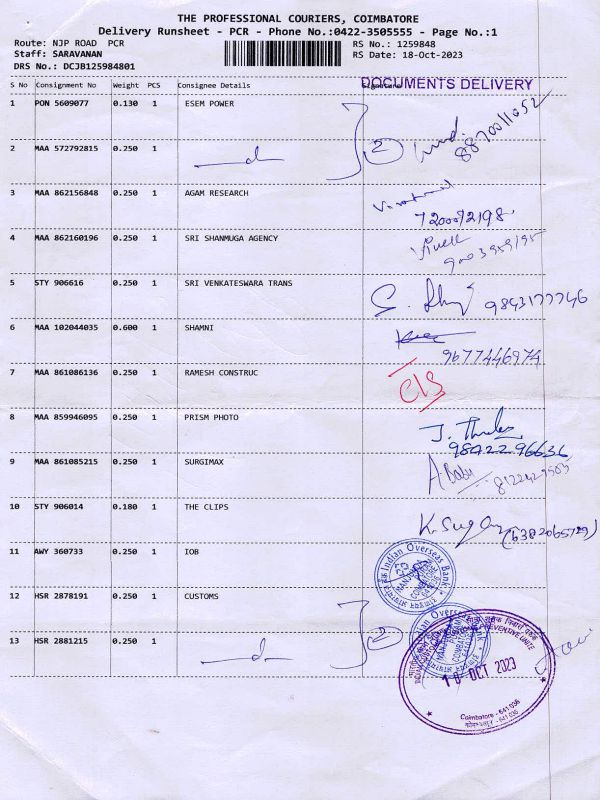 THE PROFESSIONAL COURIERS, COIMBATORE
Delivery Runsheet - PCR - Phone No.:0422-3505555 - Page No.:1
Route: NJP ROAD PCR
RS No.: 1259848
Staff: SARAVANAN
RS Date: 18-Oct-2023
DRS No.: DCJB125984801
DOCUMENTS DELIVERY
S No Consignment No Weight PCS Consignee Details Signature
1 PON 5609077 0.130 1 ESEM POWER
8870011052
2 MAA 572792815 0.250 1
2
3 MAA 862156848 0.250 1 AGAM RESEARCH
4 MAA 862160196 0.250 1 SRI SHANMUGA AGENCY
5 STY 906616 0.250 1 SRI VENKATESWARA TRANS
9843177746
6 MAA 102044035 0.600 1 SHAMNI
9677446974
7 MAA 861086136 0.250 1 RAMESH CONSTRUC
C/S
8 MAA 859946095 0.250 1 PRISM PHOTO
9842296636
9 MAA 861085215 0.250 1 SURGIMAX
A. Babu
10 STY 906014 0.180 1 THE CLIPS
(6382065729)
11 AWY 360733 0.250 1 IOB
Indian Overseas Bank
12 HSR 2878191 0.250 1 CUSTOMS
2
Indian Overseas Bank
13 HSR 2881215 0.250 1
OCT 2023
Coimbatore - 641 018